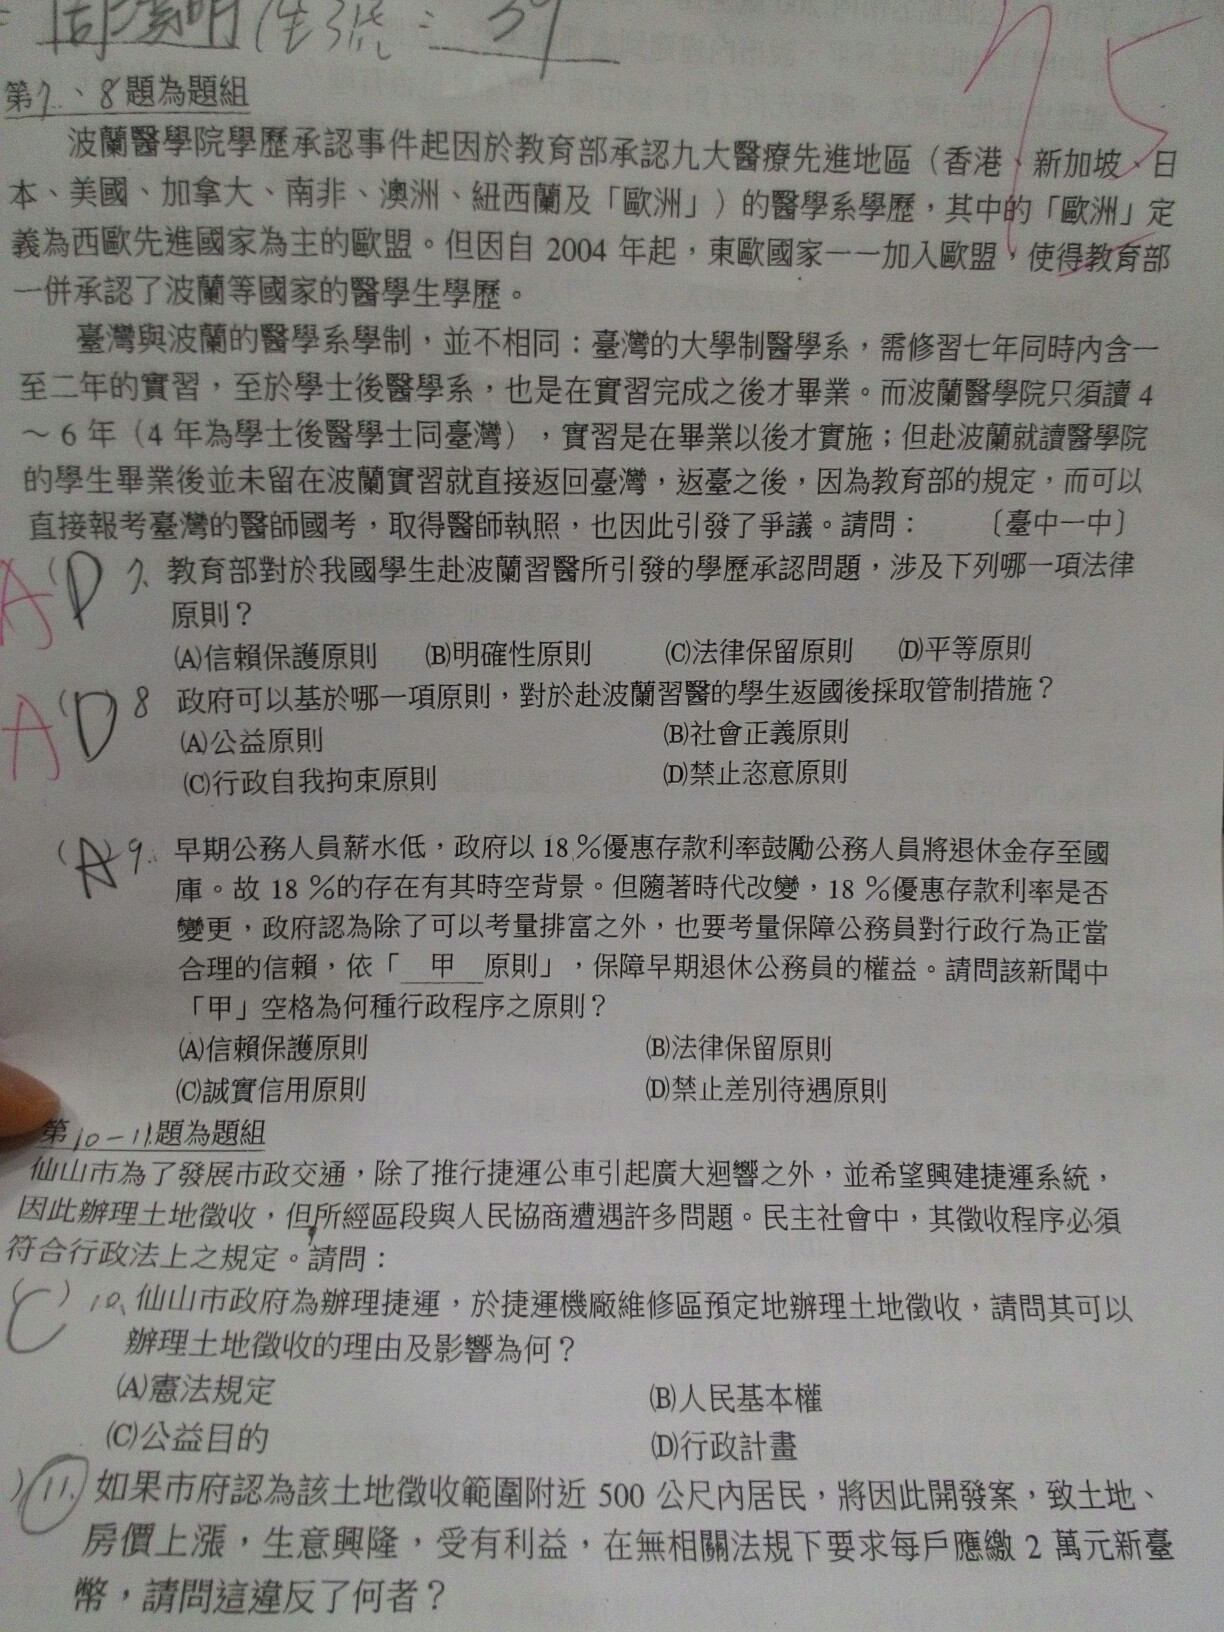 生號：39
75
第7、8題為題組
波蘭醫學院學歷承認事件起因於教育部承認九大醫療先進地區（香港、新加坡、日
本、美國、加拿大、南非、澳洲、紐西蘭及「歐洲」）的醫學系學歷，其中的「歐洲」定
義為西歐先進國家為主的歐盟。但因自 2004 年起，東歐國家一一加入歐盟，使得教育部
一併承認了波蘭等國家的醫學生學歷。
臺灣與波蘭的醫學系學制，並不相同：臺灣的大學制醫學系，需修習七年同時內含一
至二年的實習，至於學士後醫學系，也是在實習完成之後才畢業。而波蘭醫學院只須讀 4
～ 6 年（4 年為學士後醫學士同臺灣），實習是在畢業以後才實施；但赴波蘭就讀醫學院
的學生畢業後並未留在波蘭實習就直接返回臺灣，返臺之後，因為教育部的規定，而可以
直接報考臺灣的醫師國考，取得醫師執照，也因此引發了爭議。請問： 〔臺中一中〕
A (D) 7、教育部對於我國學生赴波蘭習醫所引發的學歷承認問題，涉及下列哪一項法律
原則？
(A)信賴保護原則 (B)明確性原則 (C)法律保留原則 (D)平等原則
A (D) 8 政府可以基於哪一項原則，對於赴波蘭習醫的學生返國後採取管制措施？
(A)公益原則 (B)社會正義原則
(C)行政自我拘束原則 (D)禁止恣意原則
(A) 9. 早期公務人員薪水低，政府以 18 %優惠存款利率鼓勵公務人員將退休金存至國
庫。故 18 %的存在有其時空背景。但隨著時代改變，18 %優惠存款利率是否
變更，政府認為除了可以考量排富之外，也要考量保障公務員對行政行為正當
合理的信賴，依「 甲 原則」，保障早期退休公務員的權益。請問該新聞中
「甲」空格為何種行政程序之原則？
(A)信賴保護原則 (B)法律保留原則
(C)誠實信用原則 (D)禁止差別待遇原則
第10-11題為題組
仙山市為了發展市政交通，除了推行捷運公車引起廣大迴響之外，並希望興建捷運系統，
因此辦理土地徵收，但所經區段與人民協商遭遇許多問題。民主社會中，其徵收程序必須
符合行政法上之規定。請問：
(C) 10、仙山市政府為辦理捷運，於捷運機廠維修區預定地辦理土地徵收，請問其可以
辦理土地徵收的理由及影響為何？
(A)憲法規定 (B)人民基本權
(C)公益目的 (D)行政計畫
) 11. 如果市府認為該土地徵收範圍附近 500 公尺內居民，將因此開發案，致土地、
房價上漲，生意興隆，受有利益，在無相關法規下要求每戶應繳 2 萬元新臺
幣，請問這違反了何者？